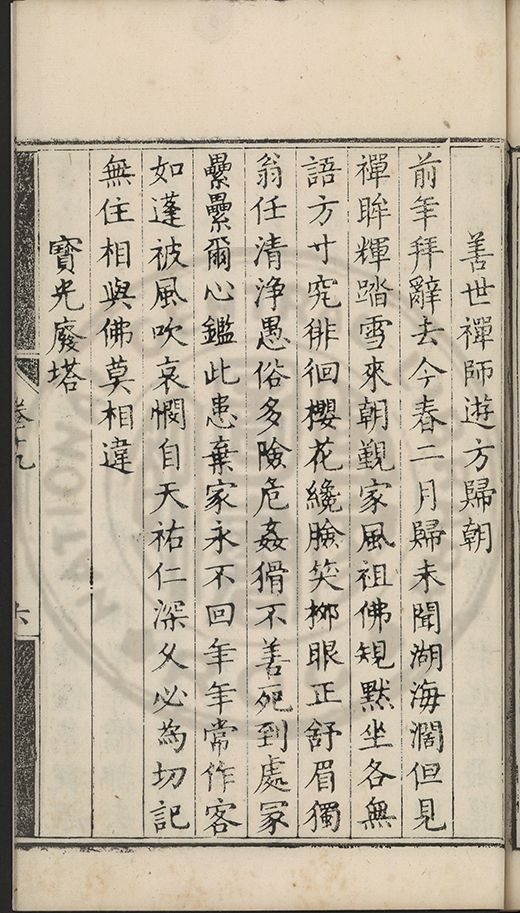 善世禪師遊方歸朝
前年拜辭去今春二月歸未聞湖海濶但見
禪眸輝踏雪來朝覲家風祖佛規默坐各無
語方寸究徘徊櫻花纔臉笑栁眼正舒眉獨
翁任清浄愚俗多險危姦猾不善死到處冢
纍纍爾心鑑此患棄家永不回年年常作客
如蓬被風吹哀憫自天祐仁深父必為切記
無住相與佛莫相違
寶光廢塔
卷十九
六